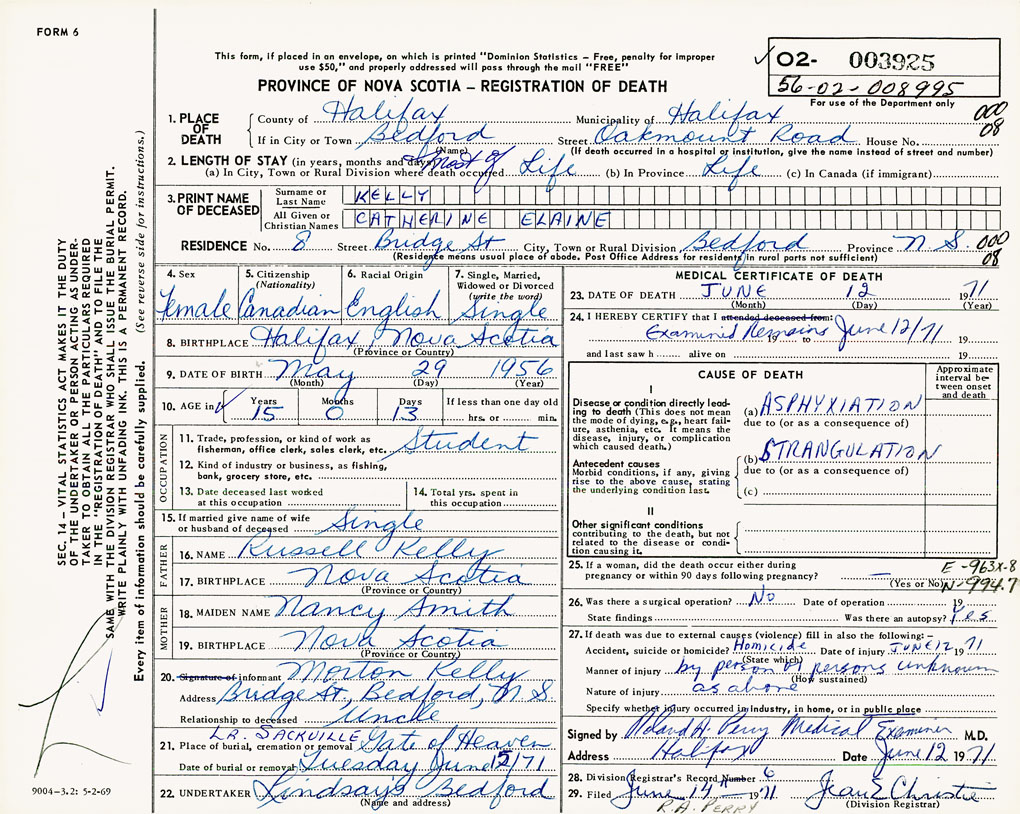 FORM 6
This form, if placed in an envelope, on which is printed "Dominion Statistics – Free, penalty for improper
use $50," and properly addressed will pass through the mail "FREE"
02- 003925
56-02-008995
For use of the Department only
PROVINCE OF NOVA SCOTIA – REGISTRATION OF DEATH
1. PLACE OF DEATH
County of Halifax Municipality of Halifax 000
If in City or Town Bedford Street Oakmount Road House No. 08
(Name) (If death occurred in a hospital or institution, give the name instead of street and number)
2. LENGTH OF STAY (in years, months and days) most of
(a) In City, Town or Rural Division where death occurred Life (b) In Province Life (c) In Canada (if immigrant)
3. PRINT NAME OF DECEASED
Surname or Last Name KELLY
All Given or Christian Names CATHERINE ELAINE
RESIDENCE No. 8 Street Bridge St City, Town or Rural Division Bedford Province N S. 000
(Residence means usual place of abode. Post Office Address for residents in rural parts not sufficient) 08
4. Sex Female
5. Citizenship (Nationality) Canadian
6. Racial Origin English
7. Single, Married, Widowed or Divorced (write the word) Single
8. BIRTHPLACE Halifax, Nova Scotia
(Province or Country)
9. DATE OF BIRTH May 29 1956
(Month) (Day) (Year)
10. AGE in Years 15 Months 0 Days 13 If less than one day old hrs. or min.
OCCUPATION
11. Trade, profession, or kind of work as fisherman, office clerk, sales clerk, etc. Student
12. Kind of industry or business, as fishing, bank, grocery store, etc.
13. Date deceased last worked at this occupation
14. Total yrs. spent in this occupation
15. If married give name of wife or husband of deceased Single
FATHER
16. NAME Russell Kelly
17. BIRTHPLACE Nova Scotia
(Province or Country)
MOTHER
18. MAIDEN NAME Nancy Smith
19. BIRTHPLACE Nova Scotia
(Province or Country)
20. Signature of informant Morton Kelly
Address Bridge St, Bedford, N S.
Relationship to deceased Uncle
LR. SACKVILLE
21. Place of burial, cremation or removal Gate of Heaven
Date of burial or removal Tuesday June 15/71
22. UNDERTAKER Lindsays Bedford
(Name and address)
MEDICAL CERTIFICATE OF DEATH
23. DATE OF DEATH JUNE 12 1971
(Month) (Day) (Year)
24. I HEREBY CERTIFY that I attended deceased from:
Examined Remains June 12/71
19 to 19
and last saw h alive on 19
CAUSE OF DEATH
Approximate interval between onset and death
I
Disease or condition directly leading to death (This does not mean the mode of dying, e.g., heart failure, asthenia, etc. It means the disease, injury, or complication which caused death.)
(a) ASPHYXIATION
due to (or as a consequence of)
Antecedent causes
Morbid conditions, if any, giving rise to the above cause, stating the underlying condition last.
(b) STRANGULATION
due to (or as a consequence of)
(c)
II
Other significant conditions
contributing to the death, but not related to the disease or condition causing it.
25. If a woman, did the death occur either during pregnancy or within 90 days following pregnancy? —
(Yes or No)
E-963X-8
N-994.7
26. Was there a surgical operation? No Date of operation 19
State findings Was there an autopsy? Yes
27. If death was due to external causes (violence) fill in also the following:–
Accident, suicide or homicide? Homicide Date of injury JUNE 12 1971
(State which)
Manner of injury by person or persons unknown
(How sustained)
Nature of injury as above
Specify whether injury occurred in industry, in home, or in public place
Signed by Roland A. Perry Medical Examiner M.D.
Address Halifax Date June 12 1971
28. Division Registrar's Record Number 6
29. Filed June 14 1971 Jean E Christie
(Division Registrar)
R.A. PERRY
SEC. 14 – VITAL STATISTICS ACT MAKES IT THE DUTY
OF THE UNDERTAKER OR PERSON ACTING AS UNDER-
TAKER TO OBTAIN ALL THE PARTICULARS REQUIRED
IN THE "REGISTRATION OF DEATH" AND TO FILE THE
SAME WITH THE DIVISION REGISTRAR WHO SHALL ISSUE THE BURIAL PERMIT.
WRITE PLAINLY WITH UNFADING INK. THIS IS A PERMANENT RECORD.
Every item of information should be carefully supplied. (See reverse side for instructions.)
9004-3.2: 5-2-69